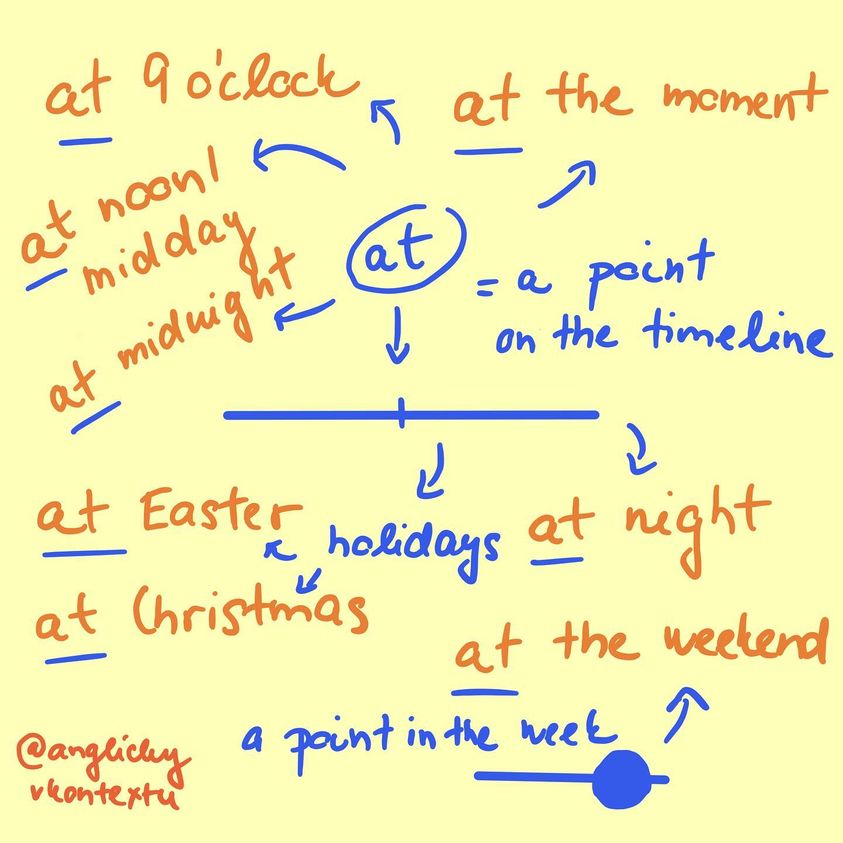 at 9 o'clock
at the moment
at noon/
midday
at midnight
at
= a point
on the timeline
at Easter
holidays
at Christmas
at night
at the weekend
a point in the week
@anglicky
vkontextu